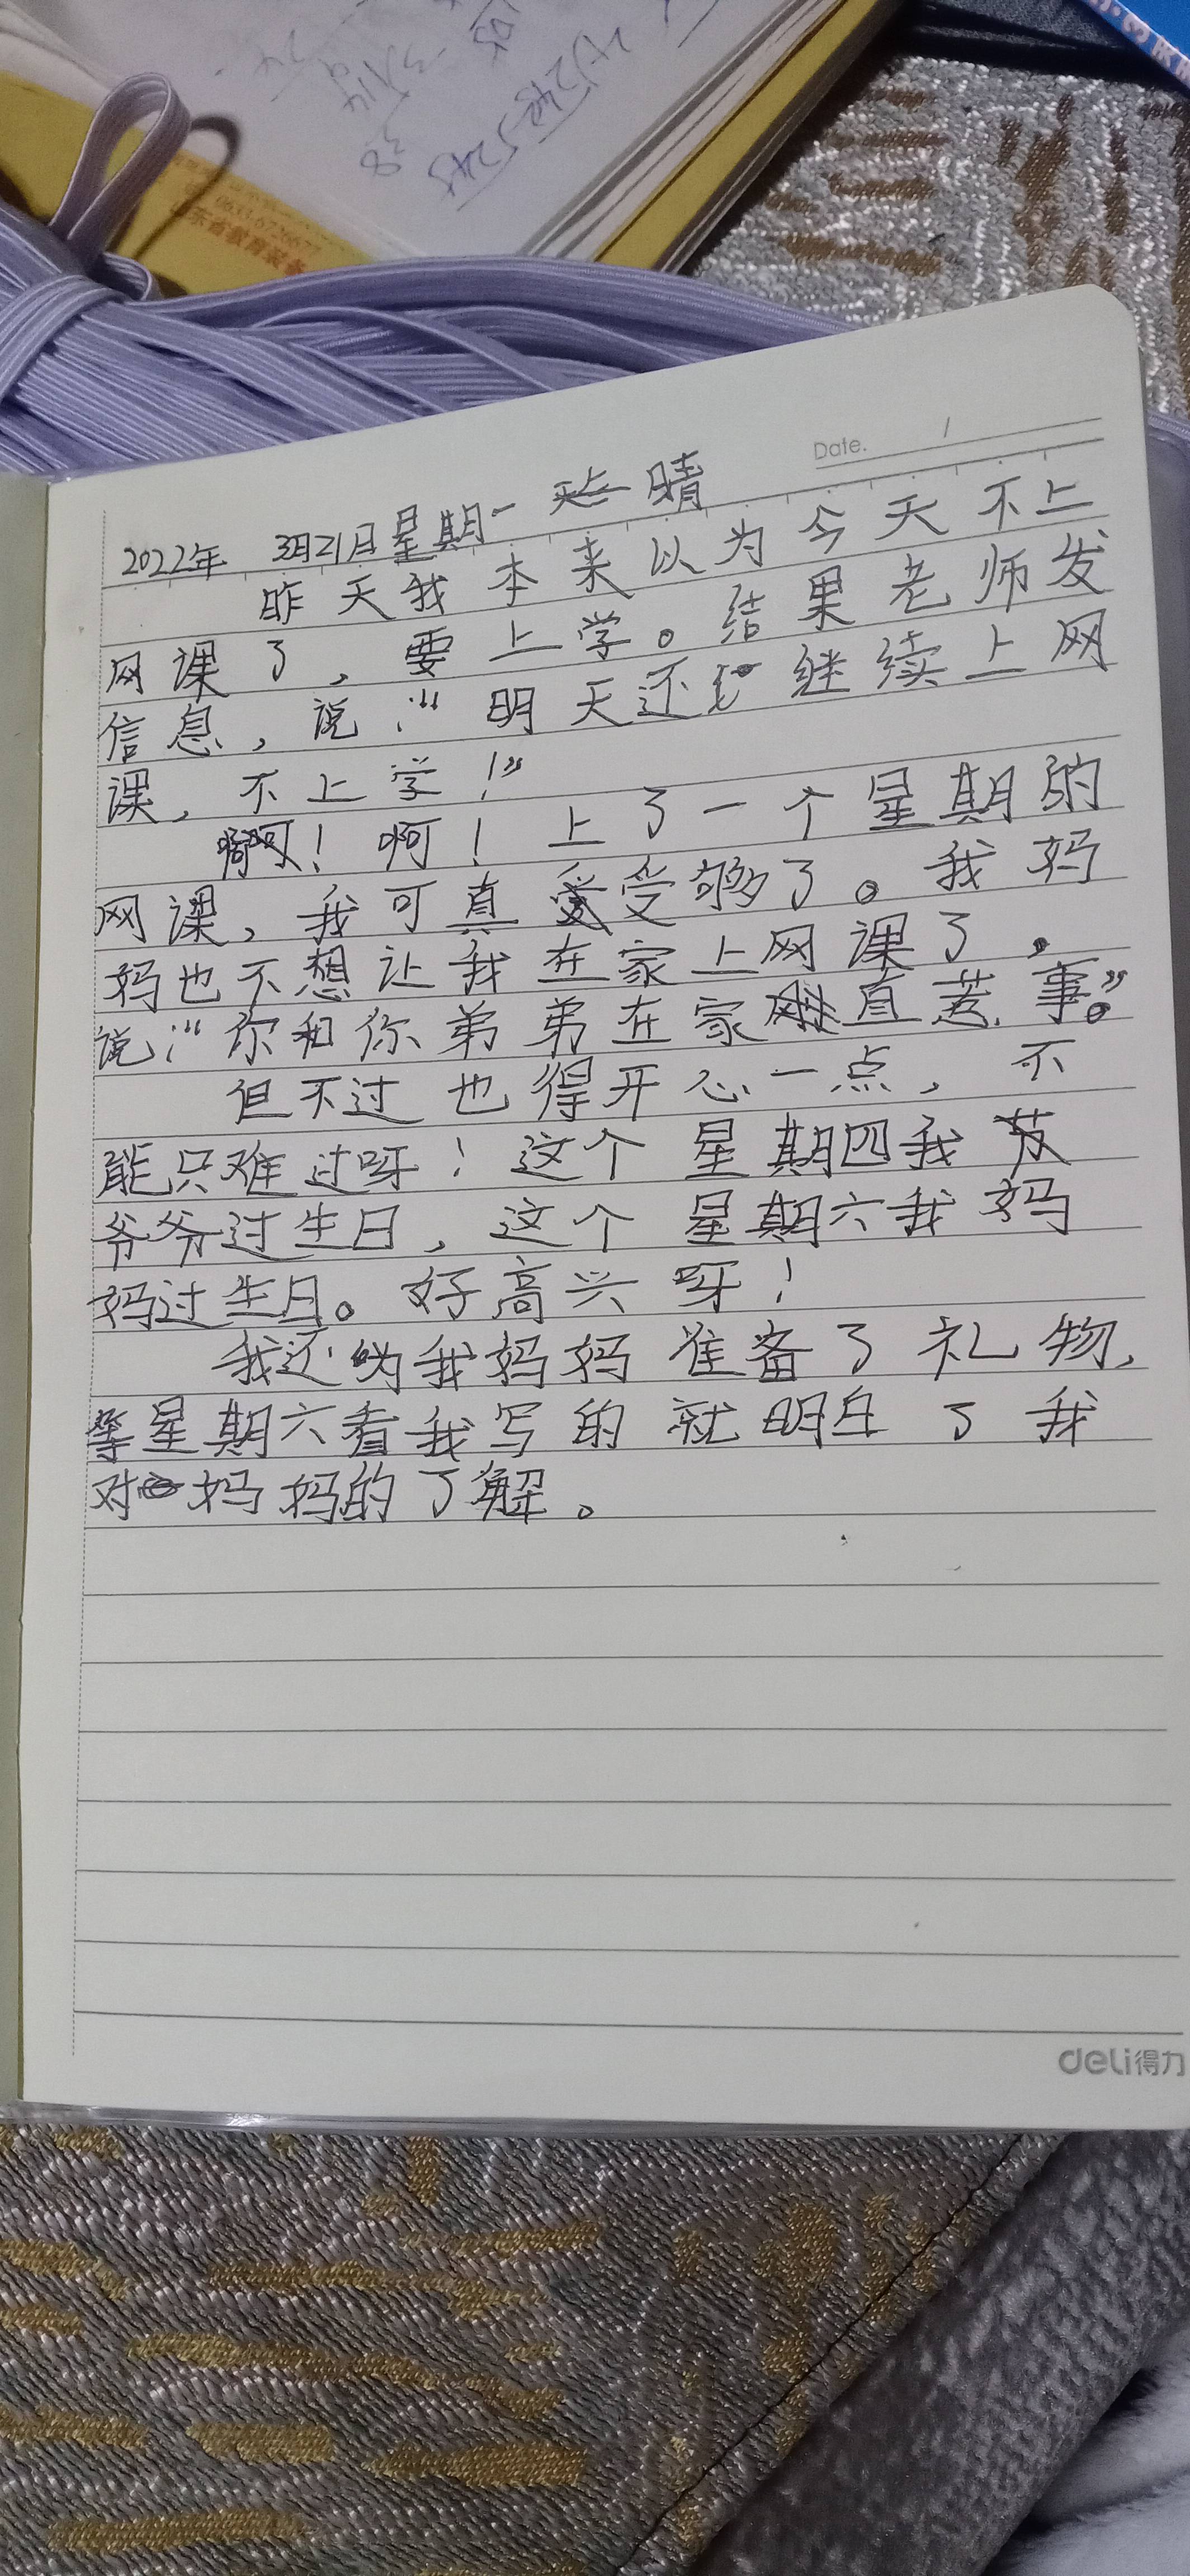 0633-6726677
山东省教育装备
Date.
2022年 3月21日星期一 晴
昨天我本来以为今天不上
网课了，要上学。结果老师发
信息，说：“明天还继续上网
课，不上学！”
啊！啊！上了一个星期的
网课，我可真受够了。我妈
妈也不想让我在家上网课了，
说：“你和你弟弟在家直惹事。”
但不过也得开心一点，不
能只难过呀！这个星期四我
爷爷过生日，这个星期六我妈
妈过生日。好高兴呀！
我还为我妈妈准备了礼物，
等星期六看我写的就明白了我
对妈妈的了解。
deli得力